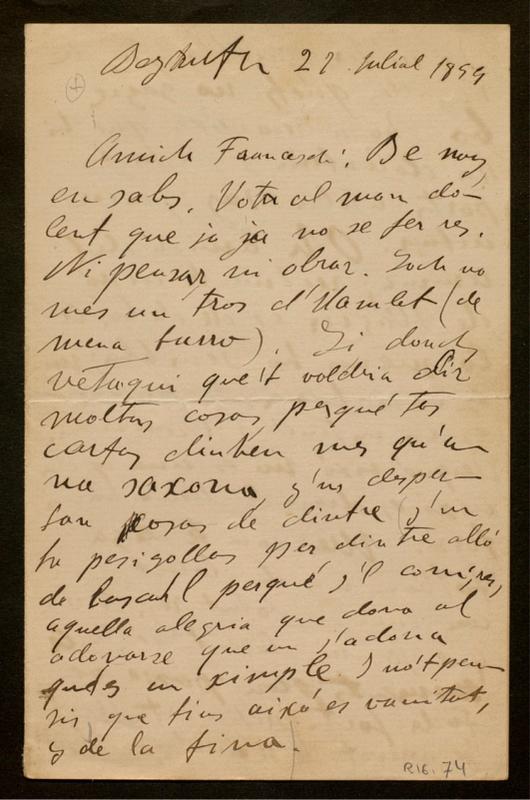 27 juliol 1899
Amich Francesch: De nou
en sabs. Vota al mon do-
lent que jo ja no se fer res.
Ni pensar ni obrar. Soch no
mes un tros d'Hamlet (de
mena burro). Si donchs
vetaqui que't voldria dir
moltas cosas perqué tas
cartas dintren mes qu'un
na saxona, y's desper-
tan cosas de dintre (y'm
fa pesigollas per dintre alló
de
aquella alegria que dona al
adonarse que un s'adona
qu'es un ximple. I no't pen-
sis que tins aixó es vanitat,
y de la fina.
R16.74